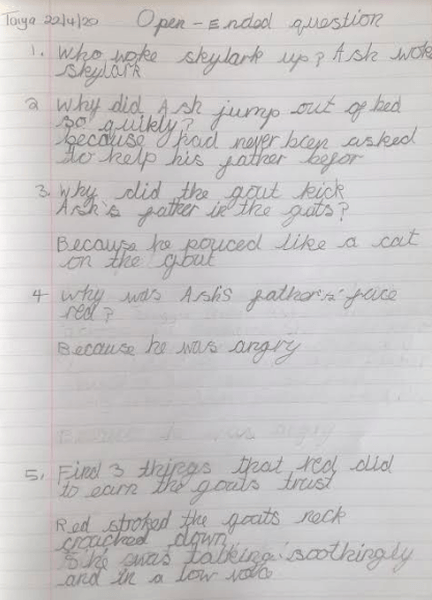 Taya 22/4/20 Open-Ended question
1. Who woke skylark up? Ash woke
skylark
2 Why did Ash jump out of bed
so quikly?
because had never been asked
to help his father befor
3. Why did the gout kick
Ash's father in the guts?
Because he pouced like a cat
on the gout
4 Why was Ash's father's face
red?
Because he was angry
5. Find 3 things that red did
to earn the goats trust
Red stroked the goats neck
crouched down,
She was talking soothingly
and in a low voice